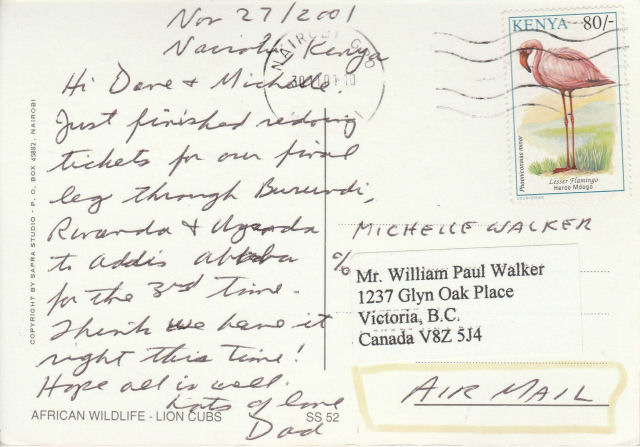 Nov 27/2001
Nairobi Kenya
Hi Dave & Michelle.
Just finished redoing
tickets for our final
leg through Burundi,
Rwanda & Uganda
to Addis Ababa
for the 3rd time.
Think we have it
right this time!
Hope all is well.
Lots of love
Dad
AFRICAN WILDLIFE - LION CUBS SS 52
COPYRIGHT BY SAPRA STUDIO - P. O. BOX 45882, NAIROBI
NAIROBI GPO
KENYA 80/-
Phoeniconaias minor
Lesser Flamingo
Heroe Mdogo
MICHELLE WALKER
c/o
Mr. William Paul Walker
1237 Glyn Oak Place
Victoria, B.C.
Canada V8Z 5J4
AIR MAIL